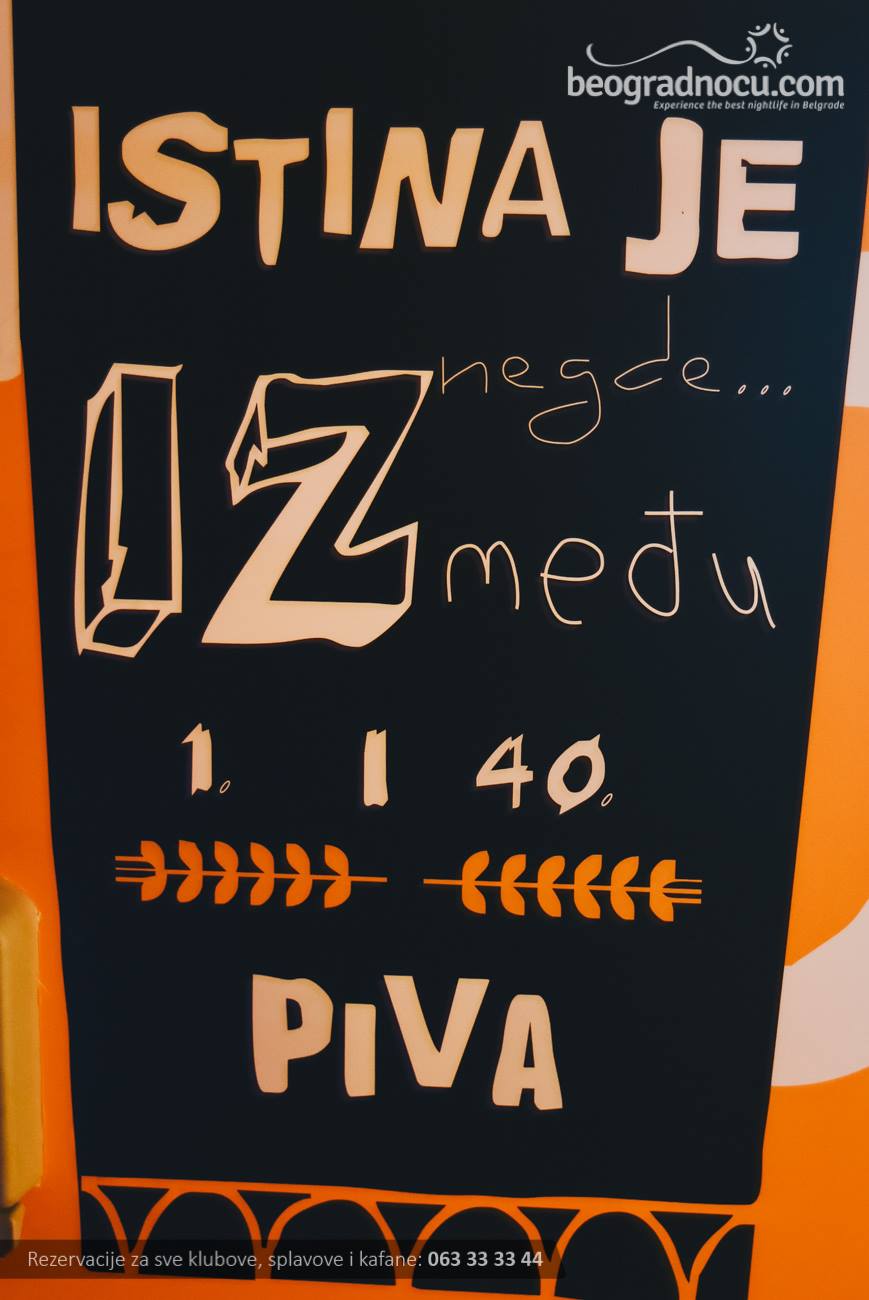 beogradnocu.com
Experience the best nightlife in Belgrade
ISTINA JE
negde...
IZ među
1. I 40.
PIVA
Rezervacije za sve klubove, splavove i kafane: 063 33 33 44